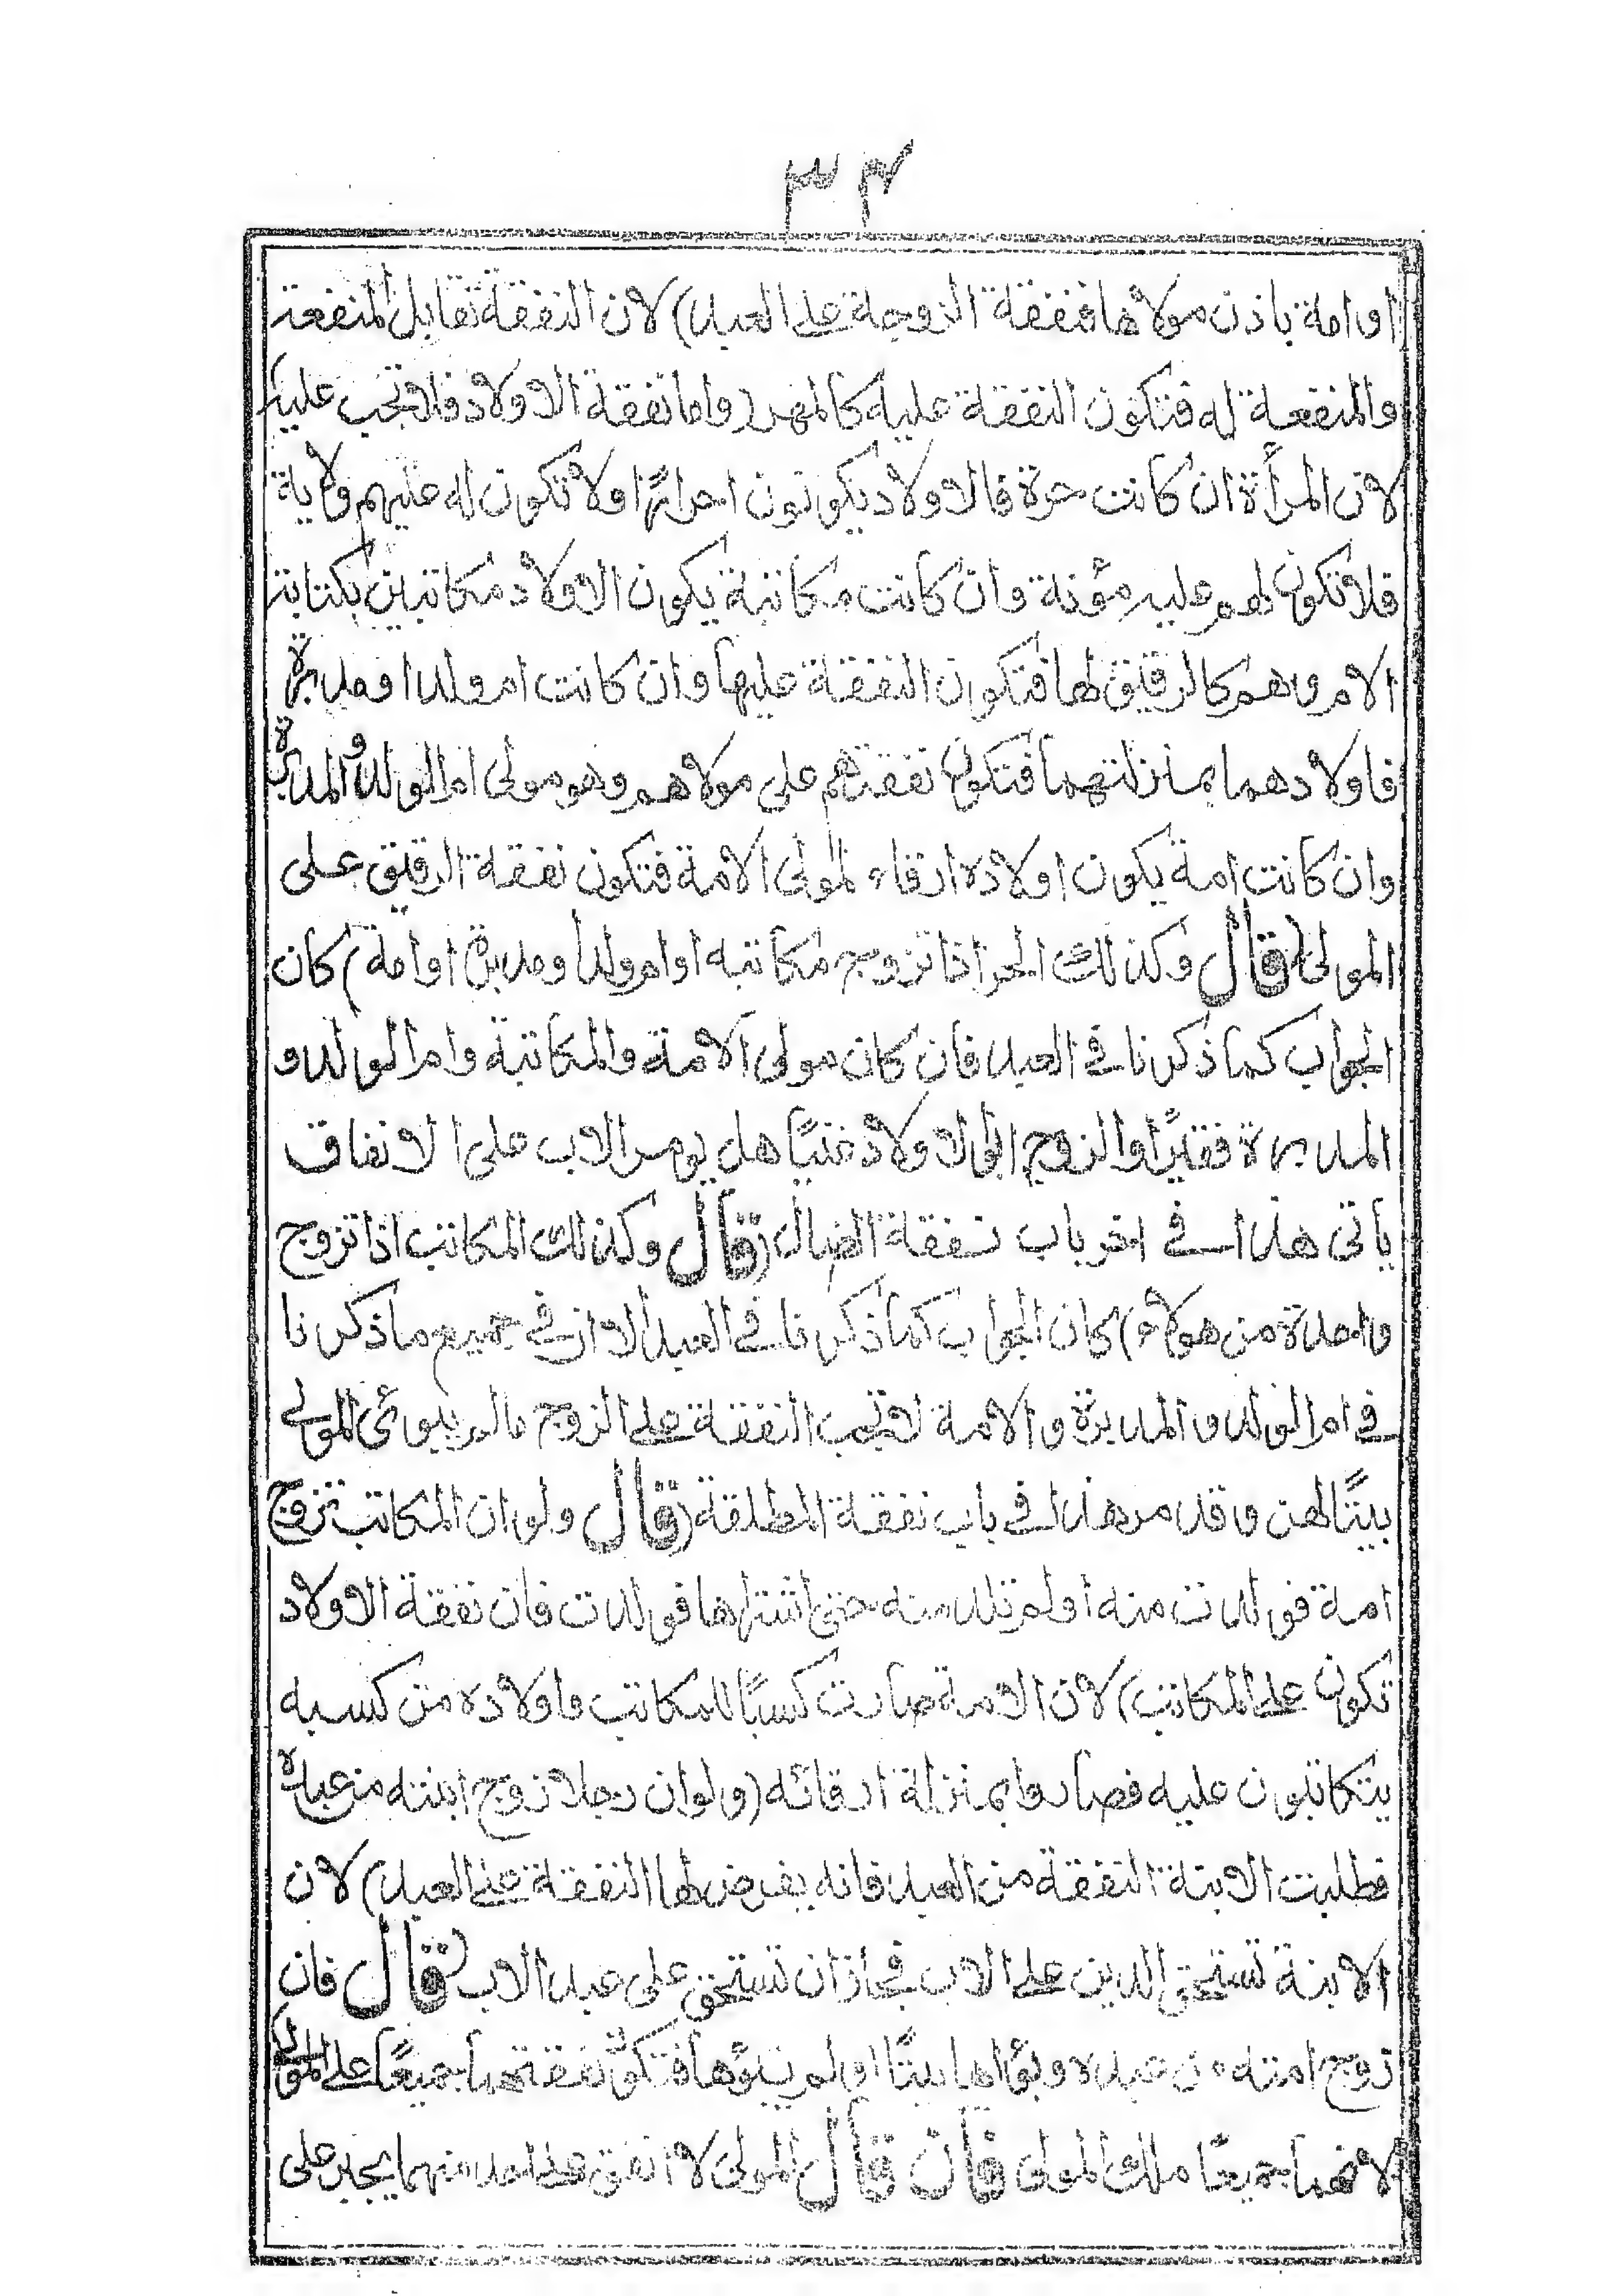 ٣٤
او امة باذن مولاها فنفقة الزوجة على العبد) لان النفقة تقابل المنفعة
والمنفعة له فتكون النفقة عليه كالمهر (واما نفقة الاولاد فلا تجب عليه)
لان المرأة ان كانت حرة فالاولاد يكونون احرارًا ولا تكون له عليهم ولاية
فلا تكون لهم عليه مؤنة وان كانت مكاتبة يكون الاولاد مكاتبين بكتابة
الام وهم كالرقيق لها فتكون النفقة عليها وان كانت ام ولد او مدبرة
فاولادهما بمنزلتهما فتكون نفقتهم على مولاهم وهو مولى ام الولد والمدبرة
وان كانت امة يكون اولاده ارقاء لمولى الامة فتكون نفقة الرقيق على
المولى (قال وكذلك الحر اذا تزوج مكاتبه او ام ولد او مدبرة او امة) كان
الجواب كما ذكرنا في العبد فان كان مولى الامة والمكاتبة وام الولد و
المدبرة فقيرًا والزوج ابو الاولاد غنيًا هل يومر الاب على الانفاق
ياتى هذا في اخر باب نفقة الضال (قال وكذلك المكاتب اذا تزوج
واحدة من هولاء) كان الجواب كما ذكرنا في العبد الا ان في جميع ما ذكرنا
في ام الولد والمدبرة والامة لا تجب النفقة على الزوج مالم يبوئ المولى
بيتًا لهن وقد مر هذا في باب نفقة المطلقة (قال ولو ان المكاتب تزوج
امة فولدت منه او لم تلد منه حتى اشتراها فولدت فان نفقة الاولاد
تكون على المكاتب) لان الامة صارت كسبًا للمكاتب واولاده من كسبه
يتكاتبون عليه فصاروا بمنزلة ارقائه (ولو ان رجلا زوج ابنته من عبده
فطلبت الابنة النفقة من العبد فانه يفرض لها النفقة على العبد) لان
الابنة تستحق الدين على الاب فجاز ان تستحق على عبد الاب (قال فان
زوج امته من عبده وبوأها بيتًا او لم يبوئها فتكون نفقتهما جميعًا على المولى)
لانهما جميعًا ملك المولى فان قال المولى لا انفق على واحد منهما يجبر على